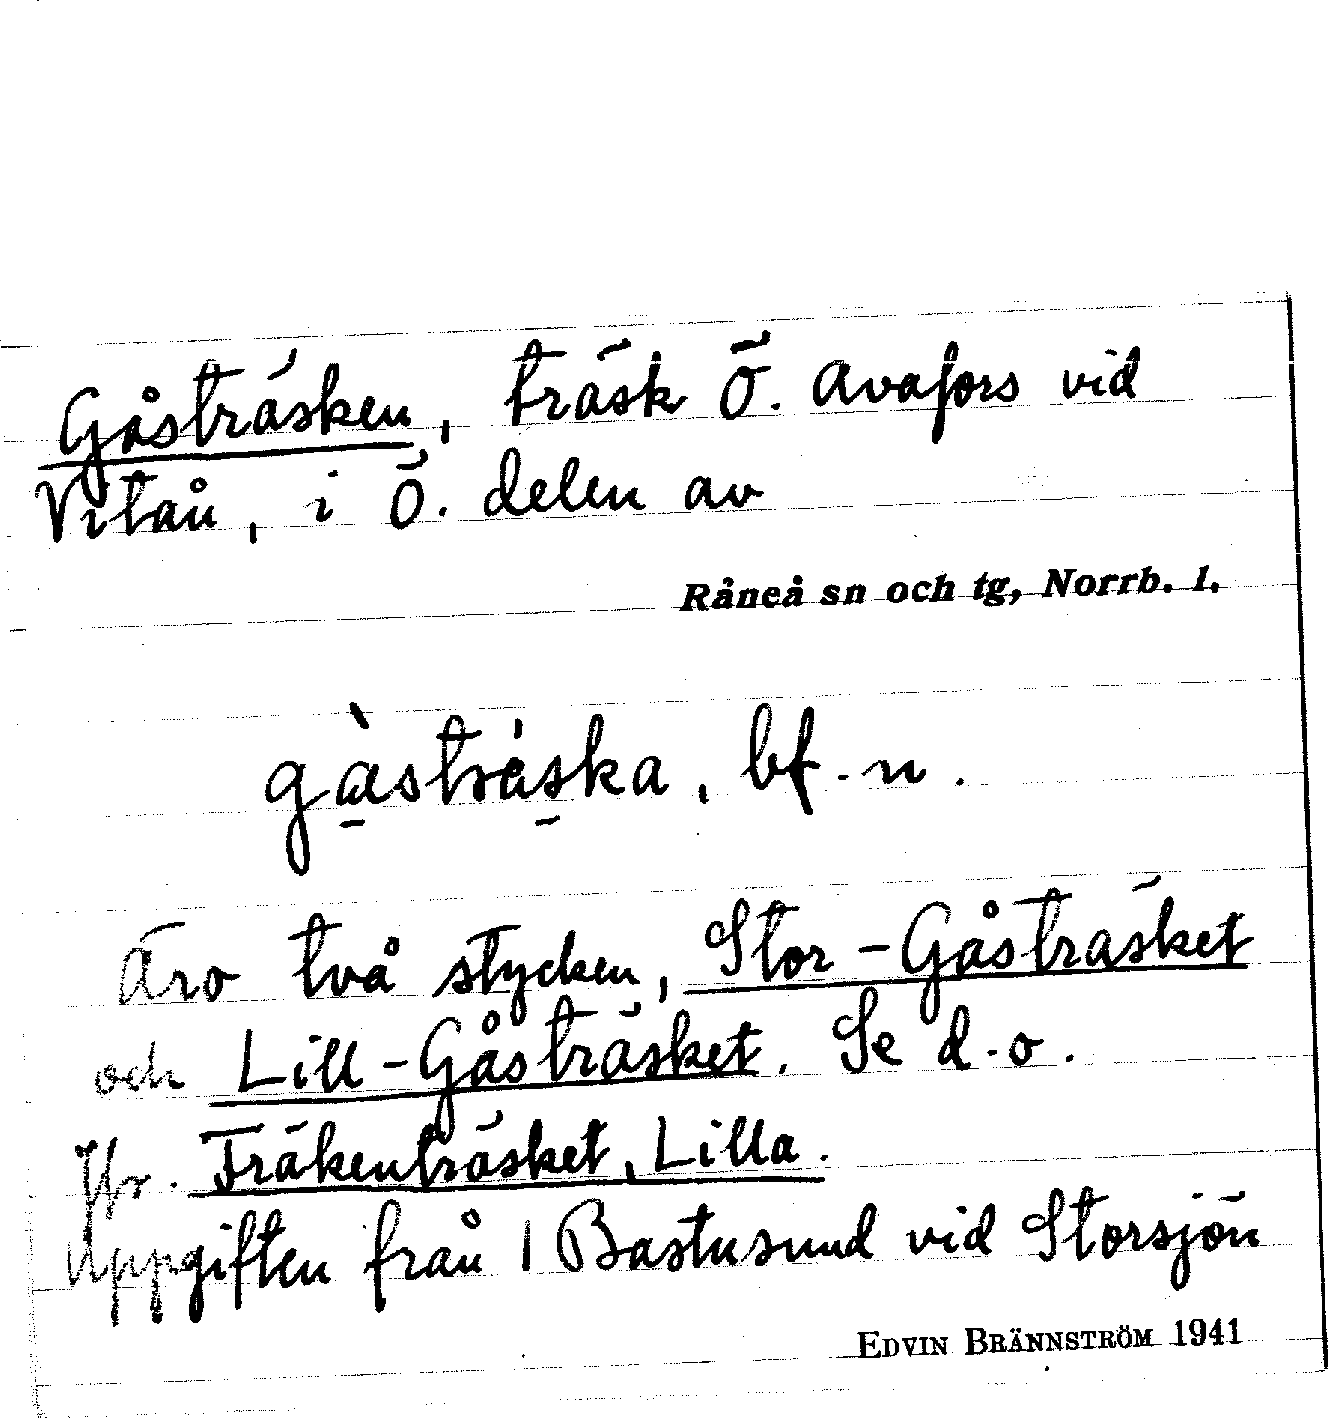 Gåsträsken, träsk Ö. Avafors vid
Vitån, i Ö. delen av
Råneå sn och tg, Norrb. l.
gàstráska, bf. n.
Äro två stycken, Stor-Gåsträsket
och Lill-Gåsträsket. Se d. o.
Jfr. Fräkenträsket, Lilla.
Uppgiften från 1 Bastusund vid Storsjön
EDVIN BRÄNNSTRÖM 1941